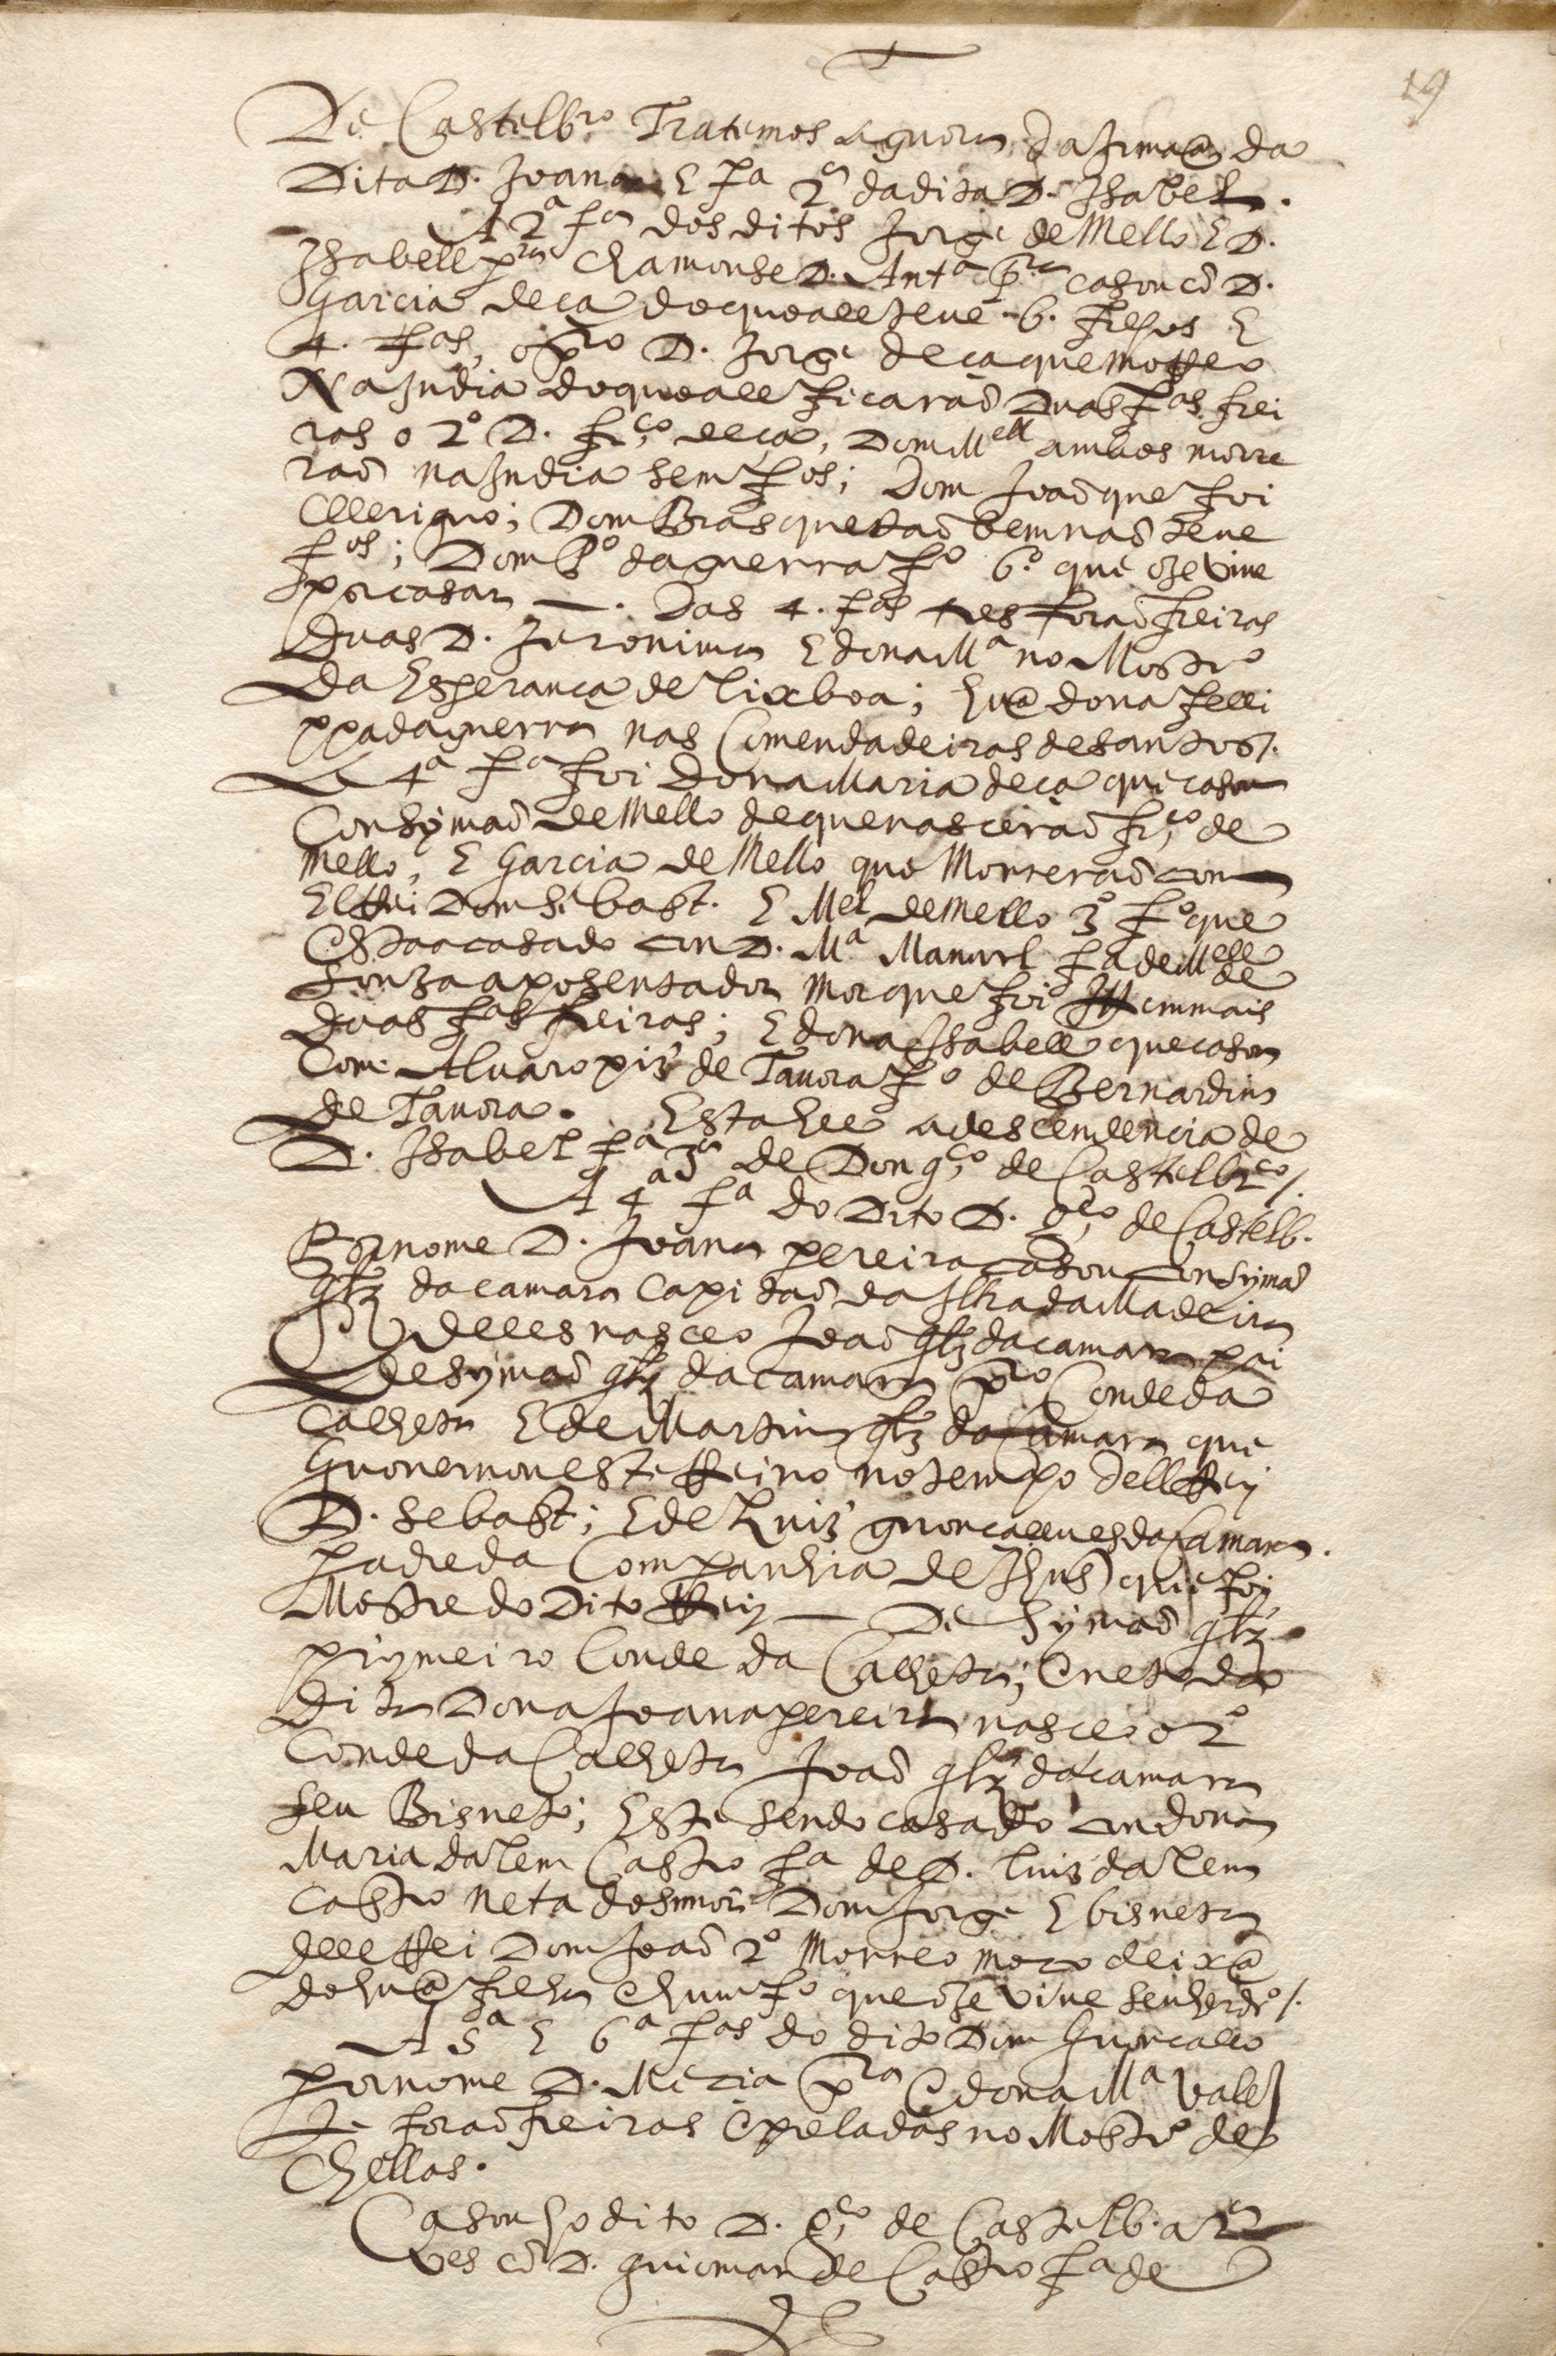 19
De Castelbrº Tratemos aguora da Jrmaã da
Dita D. Joana E fª 2ª da dita D. Isabel.
A 2ª fª dos ditos Jorge de Mello E D.
Isabell prª chamouse D. Antª prª casou cõ D.
Garcia deça do quoall teue 6. filhos E
4. fªs, o prº D. Jorge deça que morreo
Na India do quoall ficaraõ Duas fªs frei
ras o 2º D. frcº deça, Dom Mell ambos morre
raõ na India sem fºs; Dom Joaõ que foi
Clleriguo; Dom Bras que taõ bem naõ teue
fºs; Dom Pº daguerra fº 6º que oje viue
por casar —. Das 4. fªs tres foraõ freiras
Duas D. Jeronima E dona Mª no Mostrº
da Esperança de Lixboa; huã dona felli
ppa daguerra nas Comendadeiras de santos/.
A 4ª fª foi Dona Maria deça que casou
Con Symaõ de Mello de que nasceraõ frcº de
Mello, E Garcia de Mello que Morreraõ com
El Rei Dom Sebast. E Mel de Mello 3º fº que
Esta casado con D. Mª Manuel fª de Mell de
Souza aposentador mor que foi Item mais
Duas fªs freiras; E dona Isabell que casou
Com Aluaro piz de Tauora fº de Bernardim
de Tauora. Esta hee a descendencia de
D. Isabel fª 3ª de Dom gcº de Castelbrcº/.
A 4ª fª do Dito D. gcº de Castelb.
Por nome D. Joana pereira casou con Symaõ
glz da camara Capitaõ da Ilha da Madeira
delles nasceo Joaõ glz da camara pai
de Symaõ glz da camara prº Conde da
Calheta E de Martim glz da Camara que
Guouernou este Reino no tempo dell Rey
D. Sebast; E de Luis guoncallues da Camara.
padre da Companhia de Jhus que foy
Mestre do Dito Rey — De Symaõ glz
prymeiro Conde da Calheta; E neto da
dita Dona Joana pereira nasceo o 2º
Conde da Calheta Joaõ glz da camara
seu Bisneto; Este sendo casado con dona
Maria dalem Castro fª de D. Luis dalem
Castro neta do smor Dom Jorge E bisneta
dell Rei Dom Joaõ 2º Morreo moço deixã
do huã filha E hum fº que oje viue seu herdrº/.
A 5ª E 6ª fªs do dito Dom Guoncallo
por nome D. Mecia prª E dona Mª Vale
te foraõ freiras E preladas no Mostrº de
Chellas.
Casou ho dito D. gcº de Castelb. a 2ª
ves cõ D. guiomar de Castro fª de